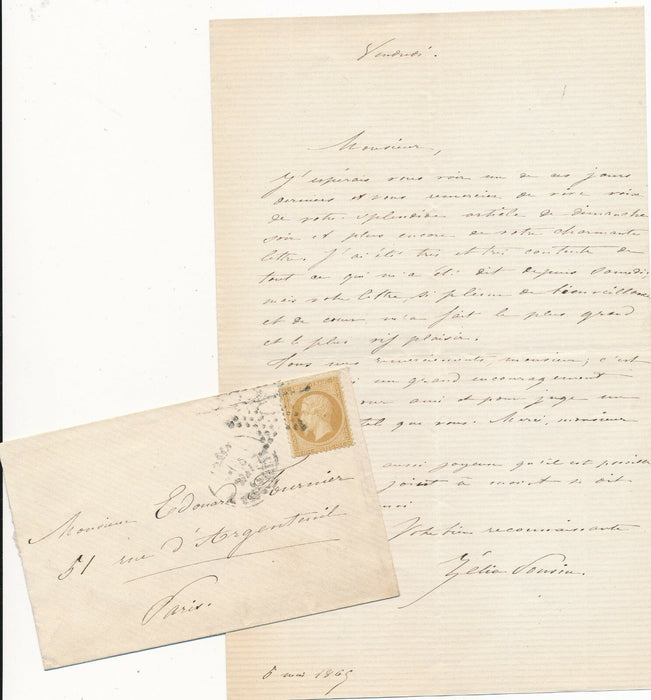 Vendredi.
Monsieur,
J'espérais vous voir un de ces jours
derniers et vous remercier de vive voix
de votre splendide article de dimanche
soir et plus encore de votre charmante
lettre. J'ai été très et très contente de
tout ce qui m'a été dit depuis samedi,
mais votre lettre, si pleine de bienveillance
et de cœur m'a fait le plus grand
et le plus vif plaisir.
Tous mes remerciements, monsieur, c'est
un grand encouragement
ami et pour juge un
tel que vous. Merci, monsieur
aussi joyeux qu'il est possible
joint à moi et se dit
moi
Votre bien reconnaissante
Zélia
5 mai 1865
Monsieur Edouard Fournier
51 rue d'Argenteuil
Paris.